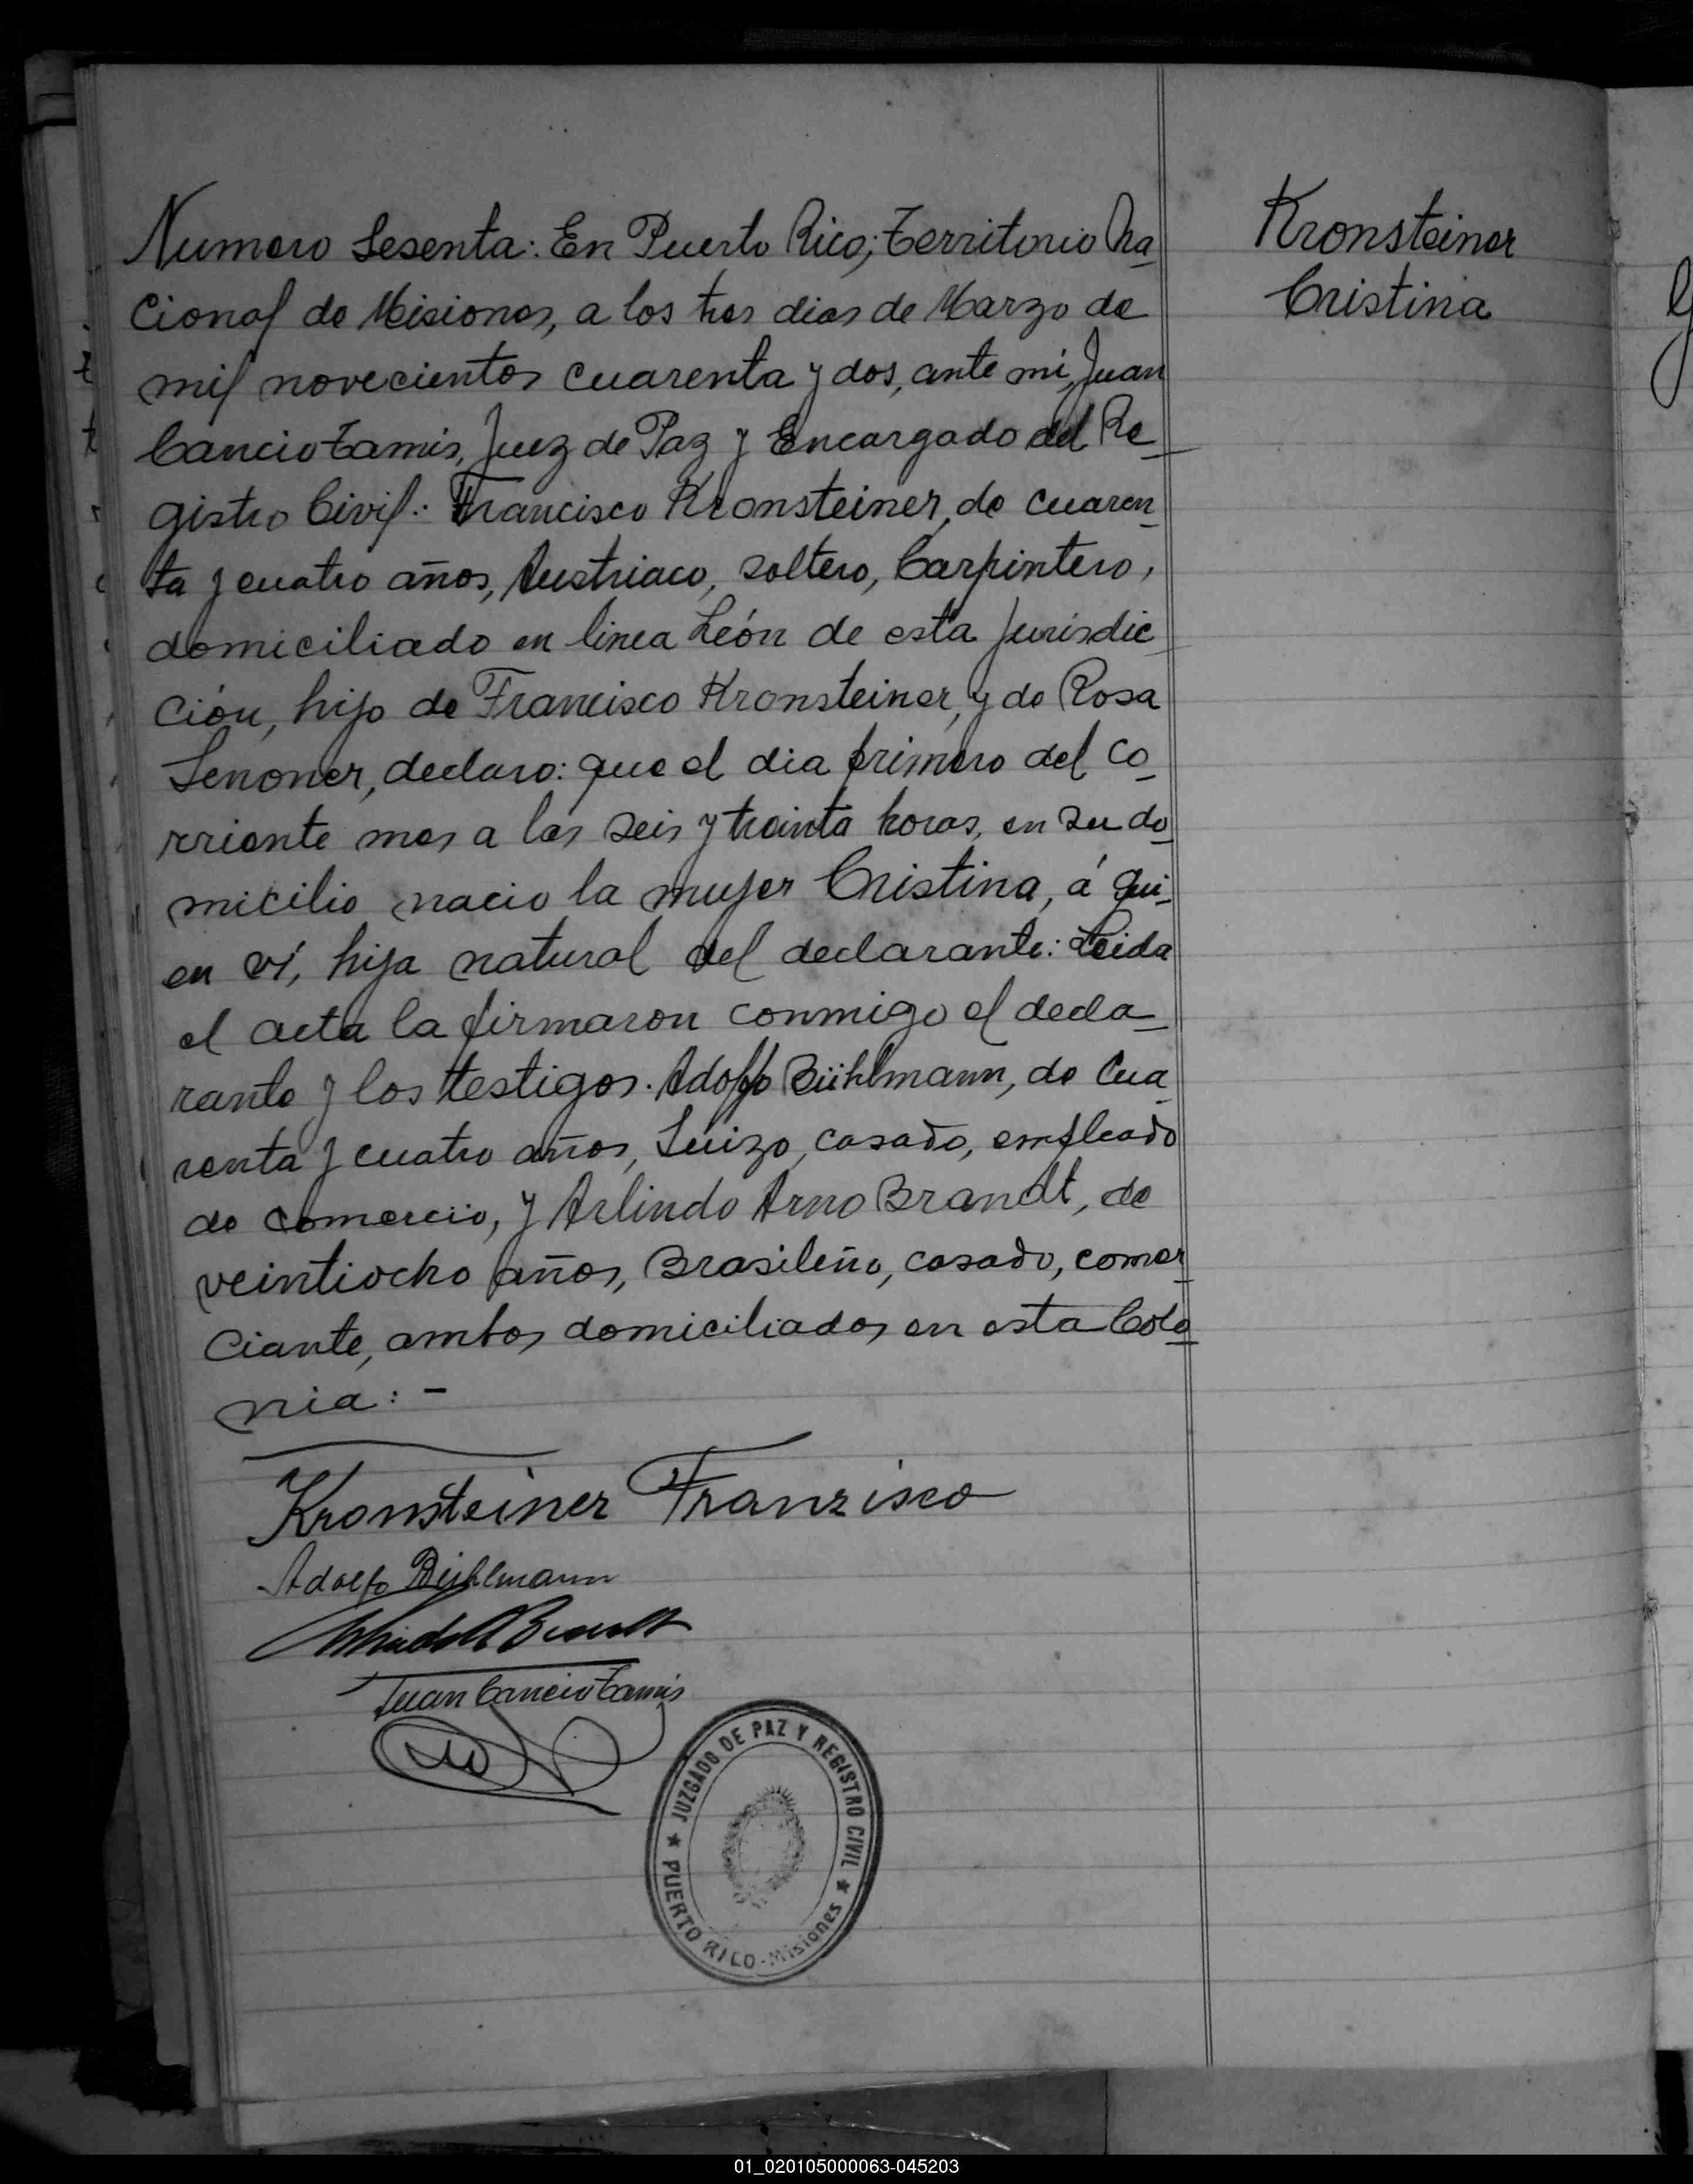 Numero Sesenta: En Puerto Rico, Territorio Na-
cional de Misiones, a los tres dias de Marzo de
mil novecientos cuarenta y dos, ante mi, Juan
Cancio Tamis, Juez de Paz y Encargado del Re-
gistro Civil: Francisco Kronsteiner, de cuaren-
ta y cuatro años, Austriaco, soltero, Carpintero,
domiciliado en linea León de esta jurisdic-
ción, hijo de Francisco Kronsteiner, y de Rosa
Senoner, declaro: que el dia primero del co-
rriente mes a las seis y treinta horas, en su do-
micilio nacio la mujer Cristina, á qui-
en ví, hija natural del declarante: Leida
el acta la firmaron conmigo el decla-
rante y los testigos. Adolfo Bühlmann, de cua-
renta y cuatro años, Suizo, casado, empleado
de comercio, y Arlindo Arno Brandt, de
veintiocho años, Brasileño, casado, comer-
ciante, ambos domiciliados en esta Colo-
nia: -
Kronsteiner Franzisco
Adolfo Bühlmann
Juan Cancio Tamis
JUZGADO DE PAZ Y REGISTRO CIVIL
PUERTO RICO - Misiones
Kronsteiner
Cristina
01_020105000063-045203